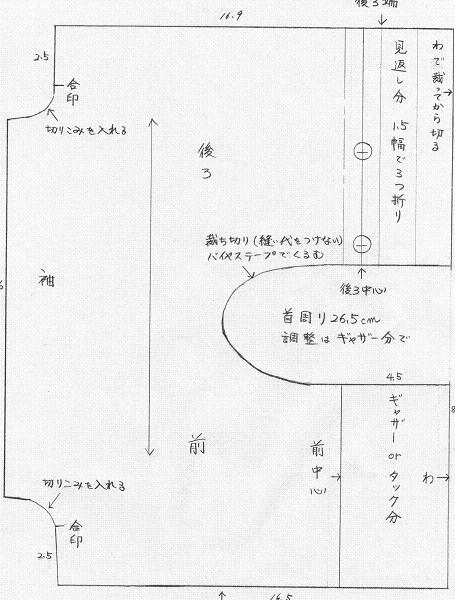 後ろ端
16.9
2.5
合印
切りこみを入れる
見返し分 1.5幅で3つ折り
わで裁ってから切る
後ろ
裁ち切り(縫い代をつけない)
バイヤステープでくるむ
後ろ中心
袖
首周り26.5cm
調整はギャザー分で
4.5
ギャザー or タック分
前
前中心
わ
切りこみを入れる
合印
2.5
16.5